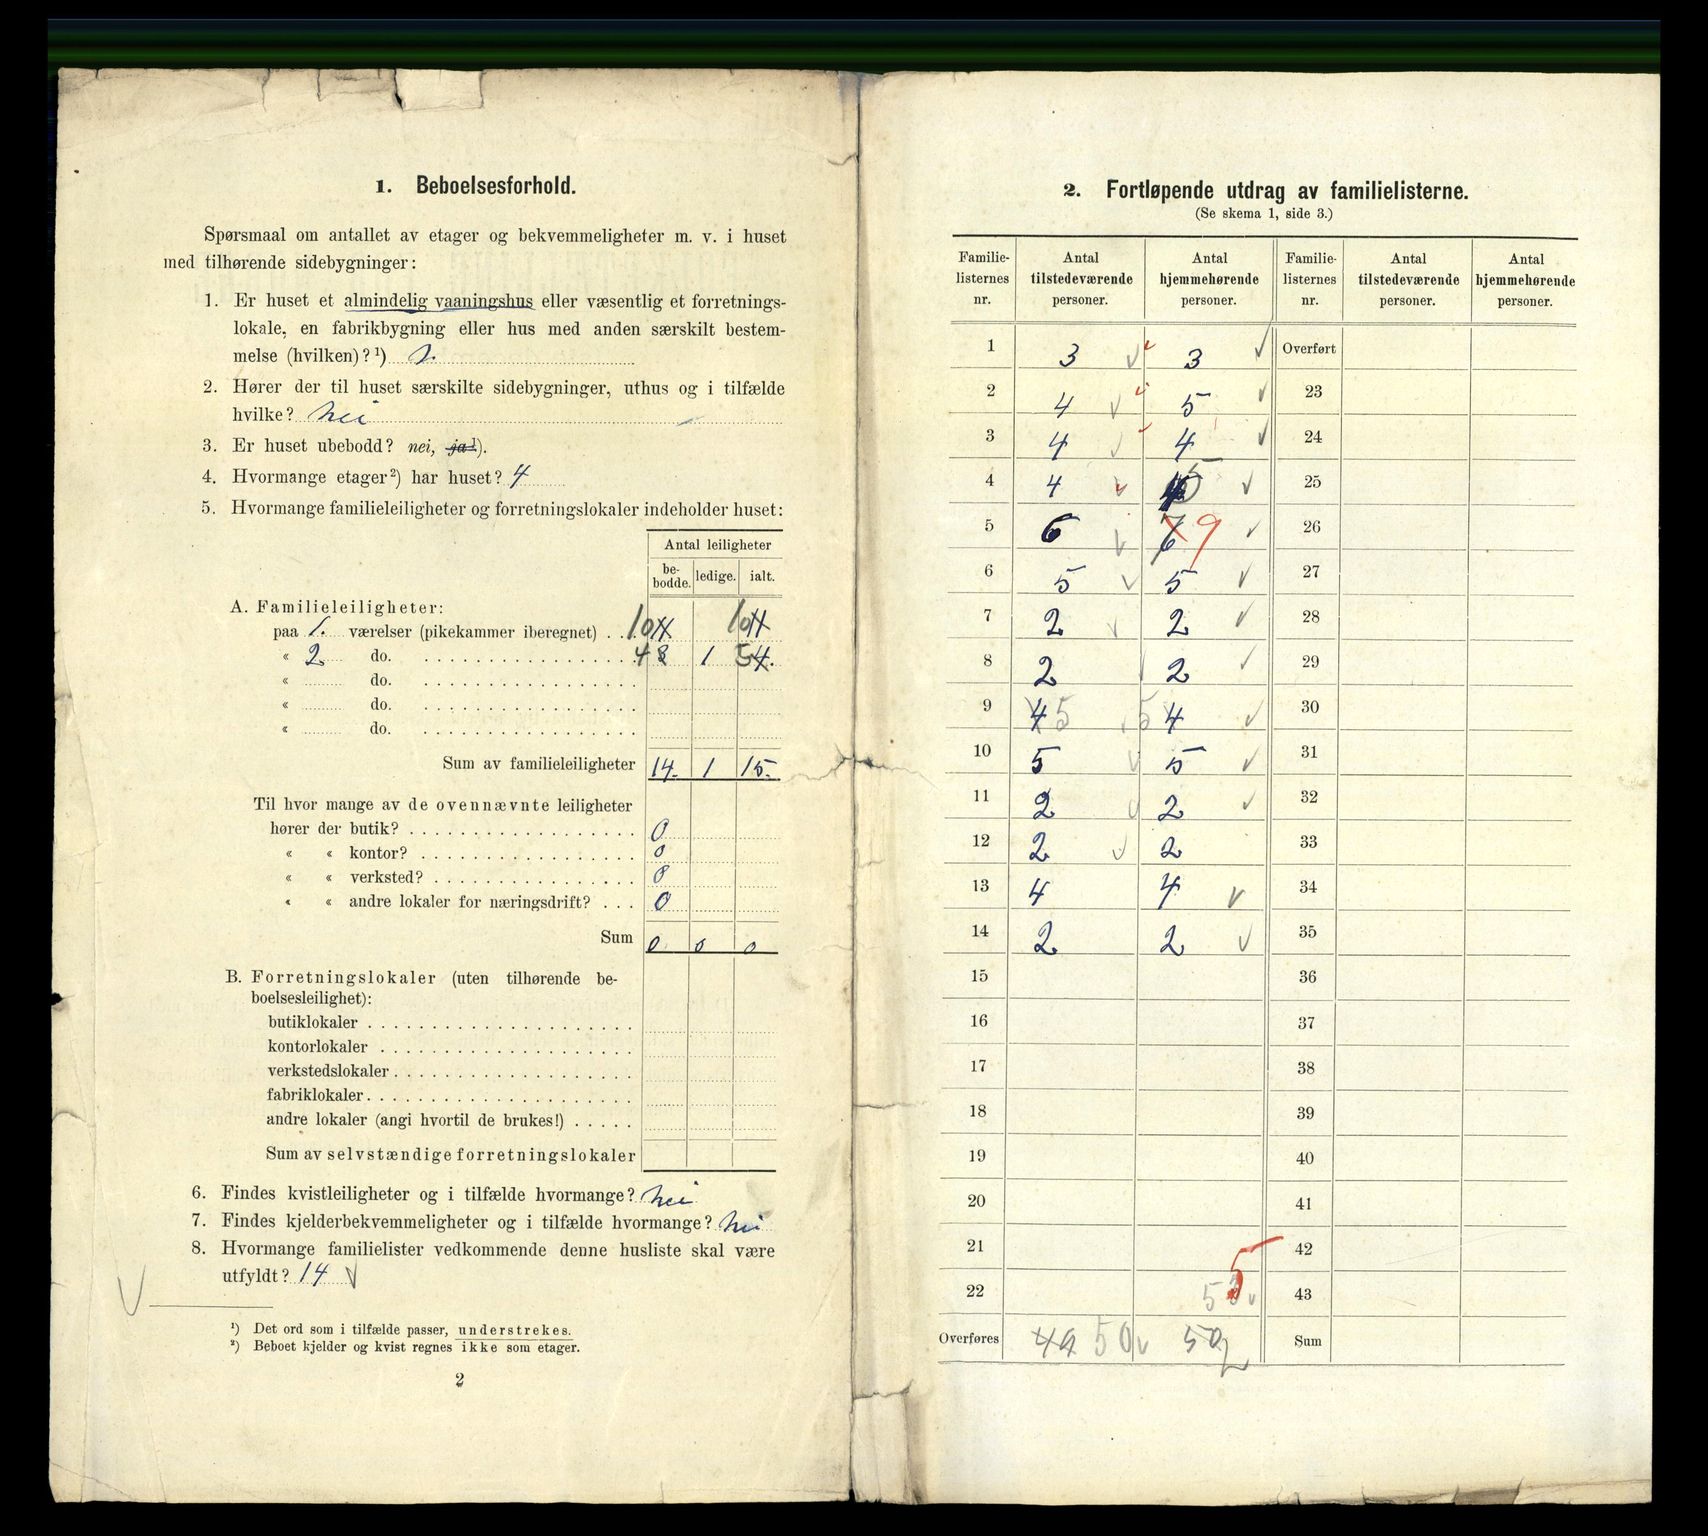 1. Beboelsesforhold.
Spørsmaal om antallet av etager og bekvemmeligheter m. v. i huset
med tilhørende sidebygninger:
1. Er huset et almindelig vaaningshus eller væsentlig et forretnings-
lokale, en fabrikbygning eller hus med anden særskilt bestem-
melse (hvilken)? ¹)
2. Hører der til huset særskilte sidebygninger, uthus og i tilfælde
hvilke? Nei
3. Er huset ubebodd? nei, ja ¹).
4. Hvormange etager ²) har huset? 4
5. Hvormange familieleiligheter og forretningslokaler indeholder huset:
Antal leiligheter
be-bodde. ledige. ialt.
A. Familieleiligheter:
paa 1. værelser (pikekammer iberegnet) . . 10 10
« 2 do. 4 1 5
« do.
« do.
« do.
Sum av familieleiligheter 14. 1 15.
Til hvor mange av de ovennævnte leiligheter
hører der butik? 0
« « kontor? 0
« « verksted? 0
« « andre lokaler for næringsdrift? . . . 0
Sum 0 0 0
B. Forretningslokaler (uten tilhørende be-
boelsesleilighet):
butiklokaler
kontorlokaler
verkstedslokaler
fabriklokaler
andre lokaler (angi hvortil de brukes!)
Sum av selvstændige forretningslokaler
6. Findes kvistleiligheter og i tilfælde hvormange? Nei
7. Findes kjelderbekvemmeligheter og i tilfælde hvormange? Nei
8. Hvormange familielister vedkommende denne husliste skal være
utfyldt? 14 √
¹) Det ord som i tilfælde passer, understrekes.
²) Beboet kjelder og kvist regnes ikke som etager.
2
2. Fortløpende utdrag av familielisterne.
(Se skema 1, side 3.)
Familie-listernes nr. Antal tilstedeværende personer. Antal hjemmehørende personer. Familie-listernes nr. Antal tilstedeværende personer. Antal hjemmehørende personer.
1 3 3 Overført
2 4 5 23
3 4 4 24
4 4 5 25
5 6 7 9 26
6 5 5 27
7 2 2 28
8 2 2 29
9 4 5 5 4 30
10 5 5 31
11 2 2 32
12 2 2 33
13 4 4 34
14 2 2 35
15 36
16 37
17 38
18 39
19 40
20 41
21 42
22 5 5 43
Overføres 49 50 50 Sum